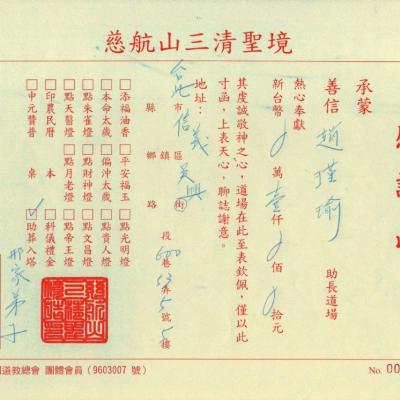 慈航山三清聖境
承蒙
善信 趙瑾瑜 助長道場
熱心奉獻
新台幣 0 萬 壹 仟 0 佰 0 拾元
其虔誠敬神之心，道場在此至表欽佩，僅以此
寸函，上表天心，聊誌謝意。
地址：台北 縣市 信義 鄉鎮區 吳興 路街 段 600 巷 53 弄 5 號 5 樓
□添福油香 □平安福玉 □點光明燈
□本命太歲 □偏沖太歲 □點貴人燈
□點朱雀燈 □點財神燈 □點文昌燈
□點天醫燈 □點月老燈 □點帝王燈
□印農民曆 本 □科儀禮金
□中元贊普 桌 ☑助葬入塔
邢家弟子
道教總會 團體會員（9603007 號）
No. 00